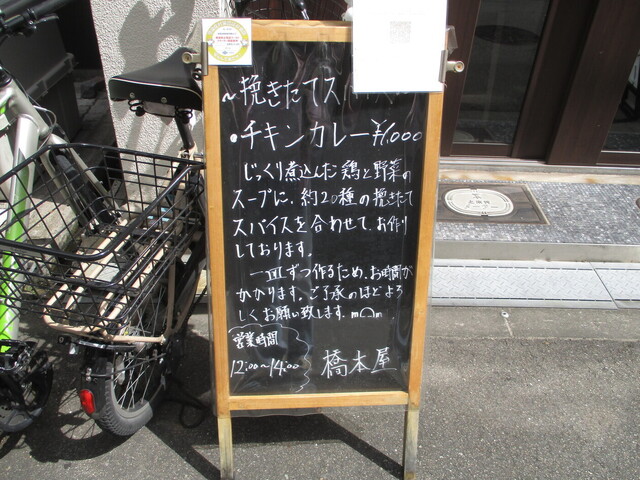 ～挽きたてス
・チキンカレー ¥1,000
じっくり煮込んだ鶏と野菜の
スープに、約20種の挽きたて
スパイスを合わせて、お作り
しております。
一皿ずつ作るため、お時間が
かかります。ご了承のほどよろ
しくお願い致します。m◠m
営業時間
12:00〜14:00
橋本屋